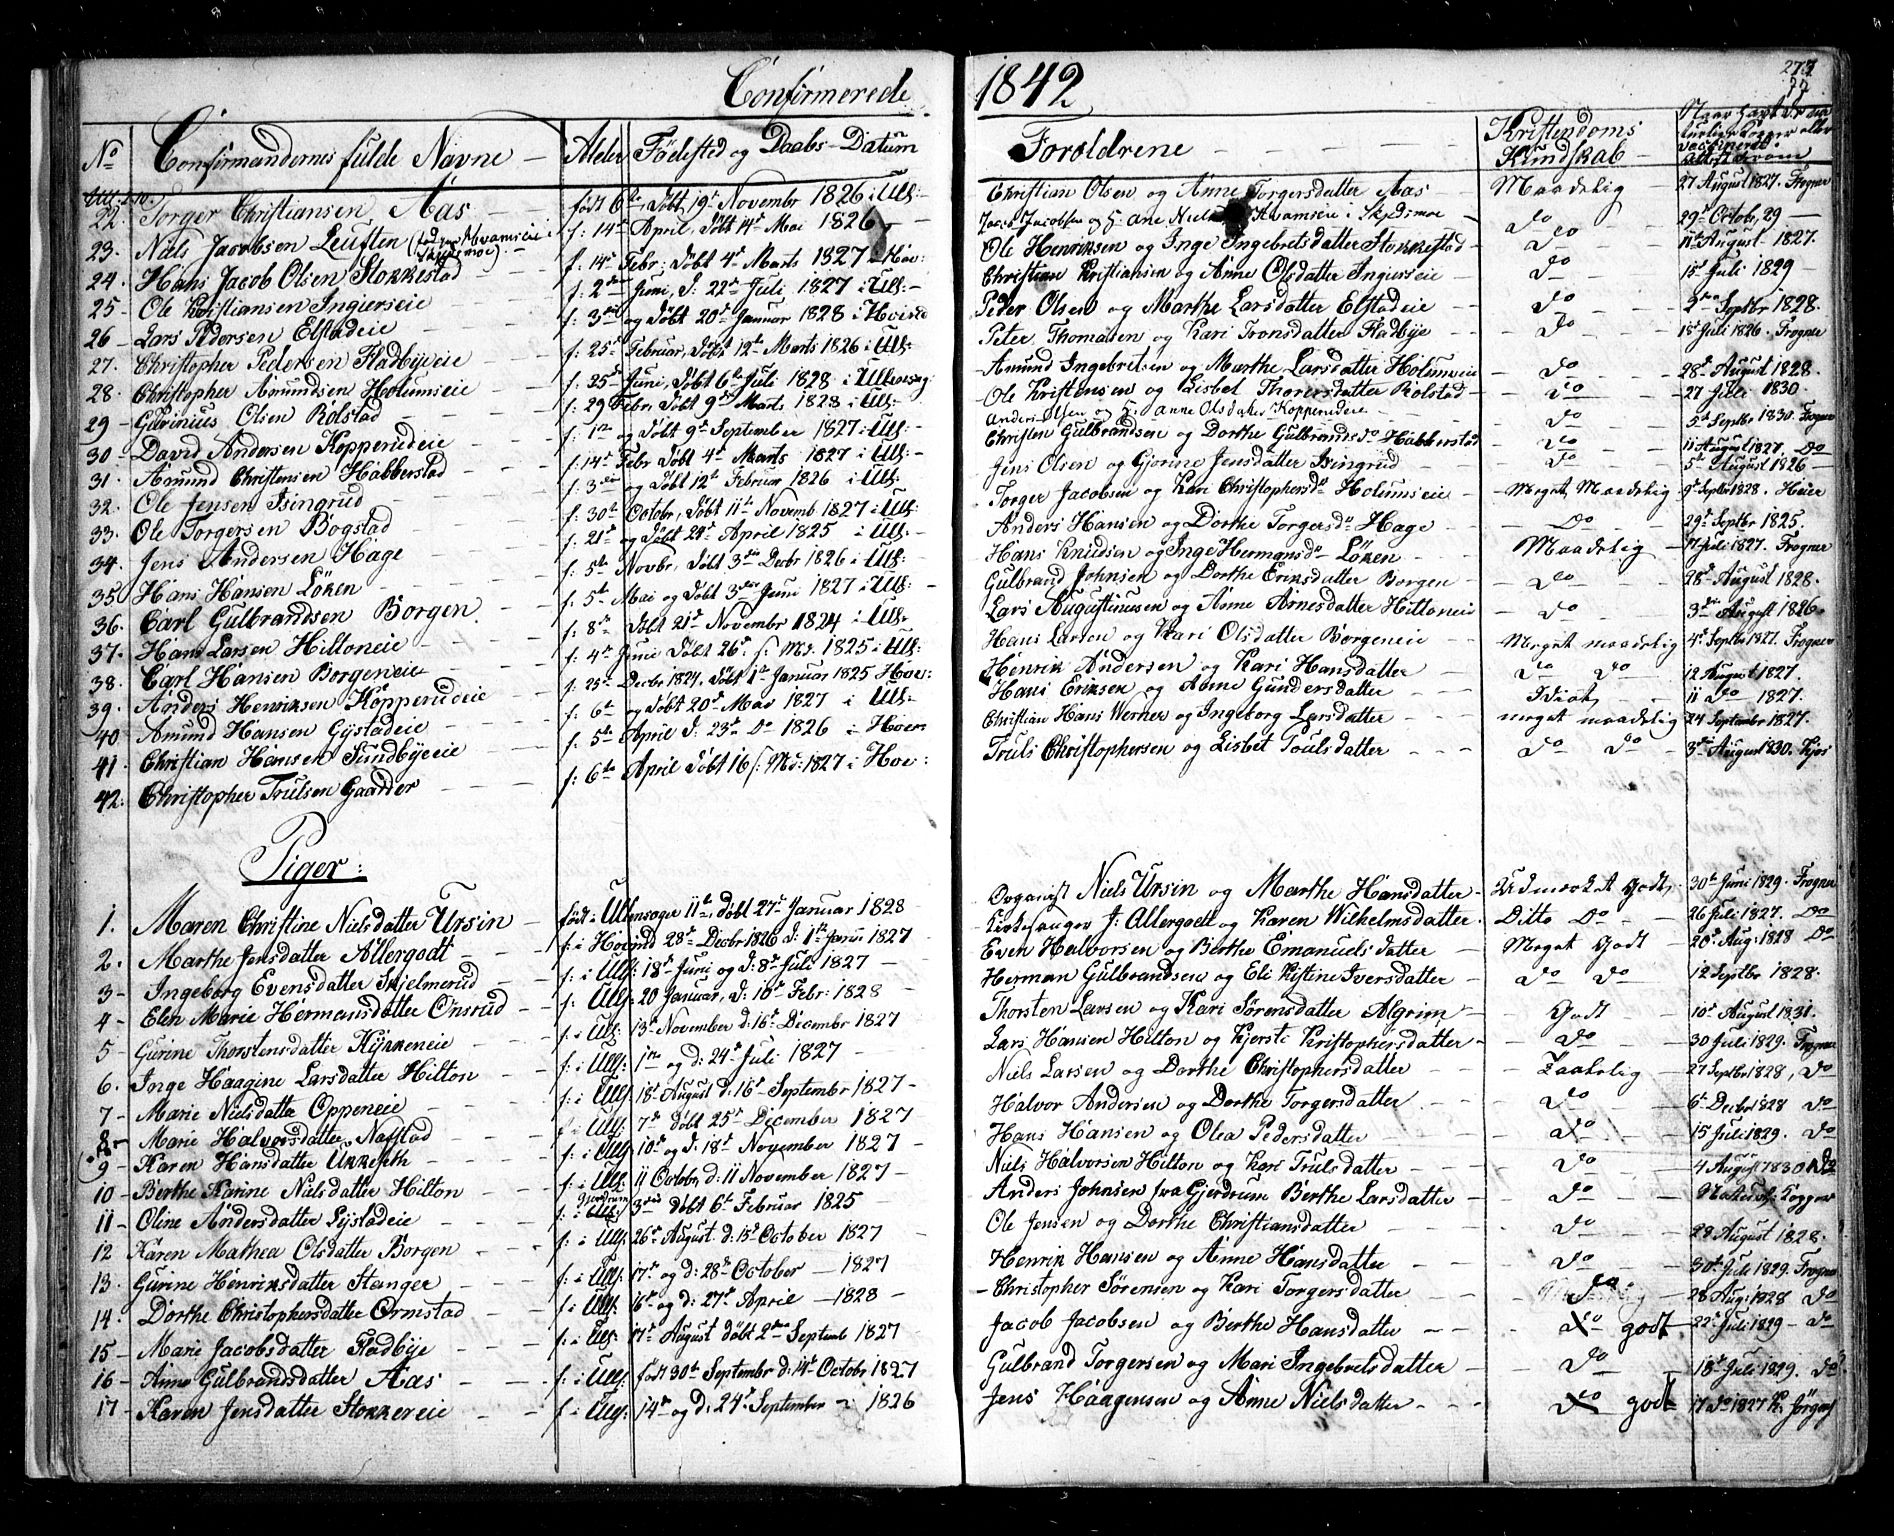 Confirmerede 1842
273
No Confirmandernes fulde Navne Alder Fødested og Daabs-Datum Forældrene Kristendoms Kundskab
22. Torger Christiansen Aas født 6te, døbt 19de Novembr 1826 i Ull: Christian Olsen og Anne Torgersdatter Aas Maadelig 27 August 1827. Frogner
23. Niels Jacobsen Leuften f. 14de April, døbt 14de Mai 1826 Jacob Jacobsen og H. Ane Kvamseie i Skedsmoe do 29de Octob, 29
24. Hans Jacob Olsen Stokkestad f. 14de Febr: døbt 4de Marts 1827 Hov: Ole Henriksen og Inge Ingebretsdatter Stokkestad do 11te August 1827.
25 Ole Kristiansen Ingierseie f: 2den Juni, d: 22de Juli 1827 i Ull: Christian Kristiansen og Anne Olsdatter Ingierseie do 15de Juli 1829
26 Lars Pedersen Elstadeie f: 3die og døbt 20de Januar 1828 i Hovind Peder Olsen og Marthe Larsdatter Elstadeie do 2den Septbr 1828.
27. Christopher Pedersen Fladbyeeie f: 25de Februar, døbt 12te Marts 1826 i Ull: Peter Thomasen og Kari Tronsdatter Fladbye do 15de Juli 1826. Frogner
28. Christopher Amundsen Holumseie f: 25de Juni, døbt 6te Juli 1828 i Ullensag: Amund Ingebretsen og Marthe Larsdatter Holumseie do 28de August 1828.
29 Gulvinius Olsen Rolstad f: 29 Febr, døbt 9de Marts 1828 i Ull: Ole Kristensen og Lisbet Thorersdatter Rolstad do 27 Juli 1830.
30 David Andersen Kopperudeie f: 1ste og døbt 9de September 1827 i Ull: Anders Olsen og H. Anne Olsdatter Kopperudeie do 5te Septbr 1830. Frogner
31. Amund Christensen Habberstad f: 14de Febr døbt 4de Marts 1827 i Ull: Christen Gulbrandsen og Dorthe Gulbrandsdr Habberstad do 11 August 1827. Do
32. Ole Jensen Isingrud f: 3die og døbt 12te Februar 1826 i Ull: Jens Olsen og Gjorine Jensdatter Isingrud do 5te August 1826
33. Ole Torgersen Bogstad f: 30te Octobr, døbt 11te Novemb 1827 i Ull: Torger Jacobsen og Kari Christophersdr Holumseie Meget Maadelig 9de Septbr 1828. Heier
34. Jens Andersen Hage f: 21de og døbt 21de April 1825 i Ull: Anders Hansen og Dorthe Torgersdr Hage Do 29de Septbr 1825.
35 Hans Hansen Löken f: 5te Novbr, døbt 3die Decbr 1826 i Ull: Hans Knudsen og Inge Hermansdr Löken Maadelig 17 Juli 1827. Frogner
36. Carl Gulbrandsen Borgen f: 5te Mai og døbt 3die Juni 1827 i Ull: Gulbrand Johnsen og Dorthe Eriksdatter Borgen do 28de August 1828.
37. Hans Larsen Hiltoneie f: 8de døbt 21de Novembr 1824 i Ull: Lars Augustinussen og Anne Arnesdatter Hiltoneie do 3die August 1826.
38. Carl Hansen Borgeneie f: 4de Juni døbt 26de s. Md. 1825 i Ull: Hans Larsen og Kari Olsdatter Borgeneie Meget maadelig 4de Septbr 1827. Frogner
39. Anders Henriksen Kopperudeie f: 25de Decbr 1824, døbt 1ste Januar 1825 Hov: Henrik Andersen og Kari Hansdatter do do 12 August 1827.
40 Amund Hansen Gystadeie f: 6te og døbt 20de Mai 1827 i Ull: Hans Eriksen og Anne Gundersdatter Idiot, 11 do 1827.
41. Christian Hansen Sundbyeeie f: 5te April d: 23de do 1826 i Hoven Christian Hans Werner og Ingeborg Larsdatter meget maadelig 24 Septembr 1827.
42. Christopher Trulsen Gaarder f: 6te April døbt 16 s: Md: 1827 i Hov: Truls Christophersen og Lisbet Toulsdatter do do 3die August 1830.
Piger:
1. Maren Christine Nielsdatter Ursin født i Ullensager 11te, døbt 27de Januar 1828 Organist Niels Ursin og Marthe Hansdatter Udmærket Godt, 30te Juni 1829. Frogner
2. Marthe Jensdatter Allergodt f: i Hovind 28de Decbr 1826 d: 1ste Janu 1827 Kirkesanger J: Allergodt og Karen Wilhelmsdatter Ditto Do 26 Juli 1827. Do
3 Ingeborg Evensdatter Skjelmerud f: i Ull: 18de Juni og d: 8de Juli 1827 Even Halvorsen og Berthe Emanuelsdatter Meget Godt 20de Aug: 1828 Do
4 Elen Marie Hermansdatter Onsrud f: Ull: 20 Januar, d: 10de Febr: 1828 Herman Gulbrandsen og Eli Kistine Iversdatter do do 12 Septbr 1828.
5 Gurine Thorstensdatter Kykkeneie f: i Ull: 13de November d: 16de Decembr 1827 Thorsten Larsen og Kari Sørensdatter Algrim Godt 10de August 1831.
6. Inge Haagine Larsdatter Hilton f: i Ull: 1ste og d: 24de Juli 1827 Lars Hansen Hilton og Kjersti Kristophersdatter do 30 Juli 1829. Frogner
7 Marie Nielsdatter Oppeneie f: i Ull: 18de August d: 16de Septembr 1827 Niels Larsen og Dorthe Christophersdatter Taalelig 27 Septbr 1828, do
8 Marie Halvorsdatter Nafstad f: i Ull: 7de døbt 25de December 1827 Halvor Andersen og Dorthe Torgersdatter do 6te Decbr 1828 do
9 Karen Hansdatter Ukkesth f: i Ull: 10de og d: 18de November 1827 Hans Hansen og Olea Pedersdatter do 15 Juli 1829. do
10 Berthe Karine Nielsdatter Hilton f: i Ull: 11 Octobr, d: 11 November 1827 Niels Halvorsen Hilton og Kari Trulsdatter do 4 August 1830 do
11 Oline Andersdatter Lystadeie f: i Gjerdrum 3die døbt 6te Februar 1825 Anders Johnsen fra Gjerdrum Berthe Larsdatter do Naturl: Kopper
12 Karen Mathea Olsdatter Borgen f: i Ull: 26de August d: 15de October 1827 Ole Jensen og Dorthe Christiansdatter do 29 August 1828.
13. Gurine Henriksdatter Stanger f: i Ull: 17de og d: 28de October 1827 Henrik Hansen og Anne Hansdatter do 30te Juli 1829. Frogner
14. Dorthe Christophersdatter Ormstad f: i Ull: 16de og d: 27de April 1828 Christopher Sørensen og Kari Torgersdatter do 28 Aug: 1828 do
15 Marie Jacobsdatter Fladbye f: i Ull: 17de August døbt 2den Septemb 1827 Jacob Jacobsen og Berthe Hansdatter do godt 22de Juli 1829 do
16 Anne Gulbrandsdatter Aas f: i Ull: født 30te Septembr d: 14de Octobr 1827 Gulbrand Torgersen og Mari Ingebretsdatter do 18de Juli 1829. do
17 Karen Jensdatter Stokkereie f: i Ull: 14de og d: 24de September 1826 Jens Haagensen og Anne Nielsdatter do godt 17 do 1827